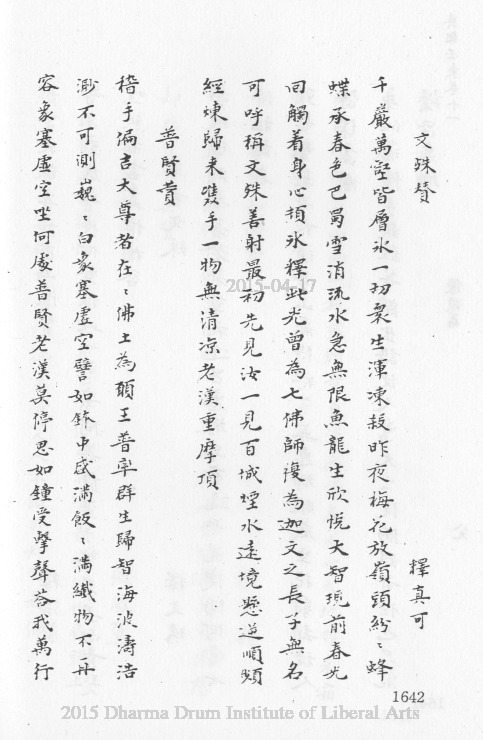 文殊贊
釋真可
千巖萬壑皆層冰一切衆生渾凍殺昨夜梅花放嶺頭紛〻蜂
蝶承春色巴蜀雪消流水急無限魚龍生欣悅大智現前春光
回觸着身心損冰釋此光曾為七佛師復為迦文之長子無名
可呼稱文殊善射最初先見汝一見百城煙水遠境悬逆順頻
經煉歸来雙手一物無清凉老漢重摩頂
普賢贊
稽手徧吉大尊者在〻佛土為願王普率群生歸智海波濤浩
渺不可測巍〻白象塞虛空譬如鉢中盛滿飯〻滿纖物不再
容象塞虛空坐何處普賢老漢莫停思如鐘受擊聲答我萬行
1642
2015-04-17
2015 Dharma Drum Institute of Liberal Arts